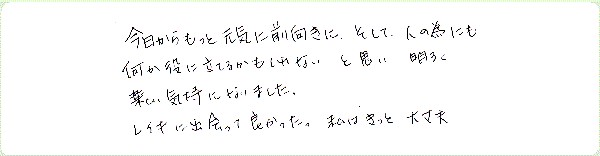 今日からもっと元気に前向きに、そして、人の為にも
何か役に立てるかもしれない と思い 明るく
楽しい気持になりました。
レイキに出会って良かった。私はきっと 大丈夫